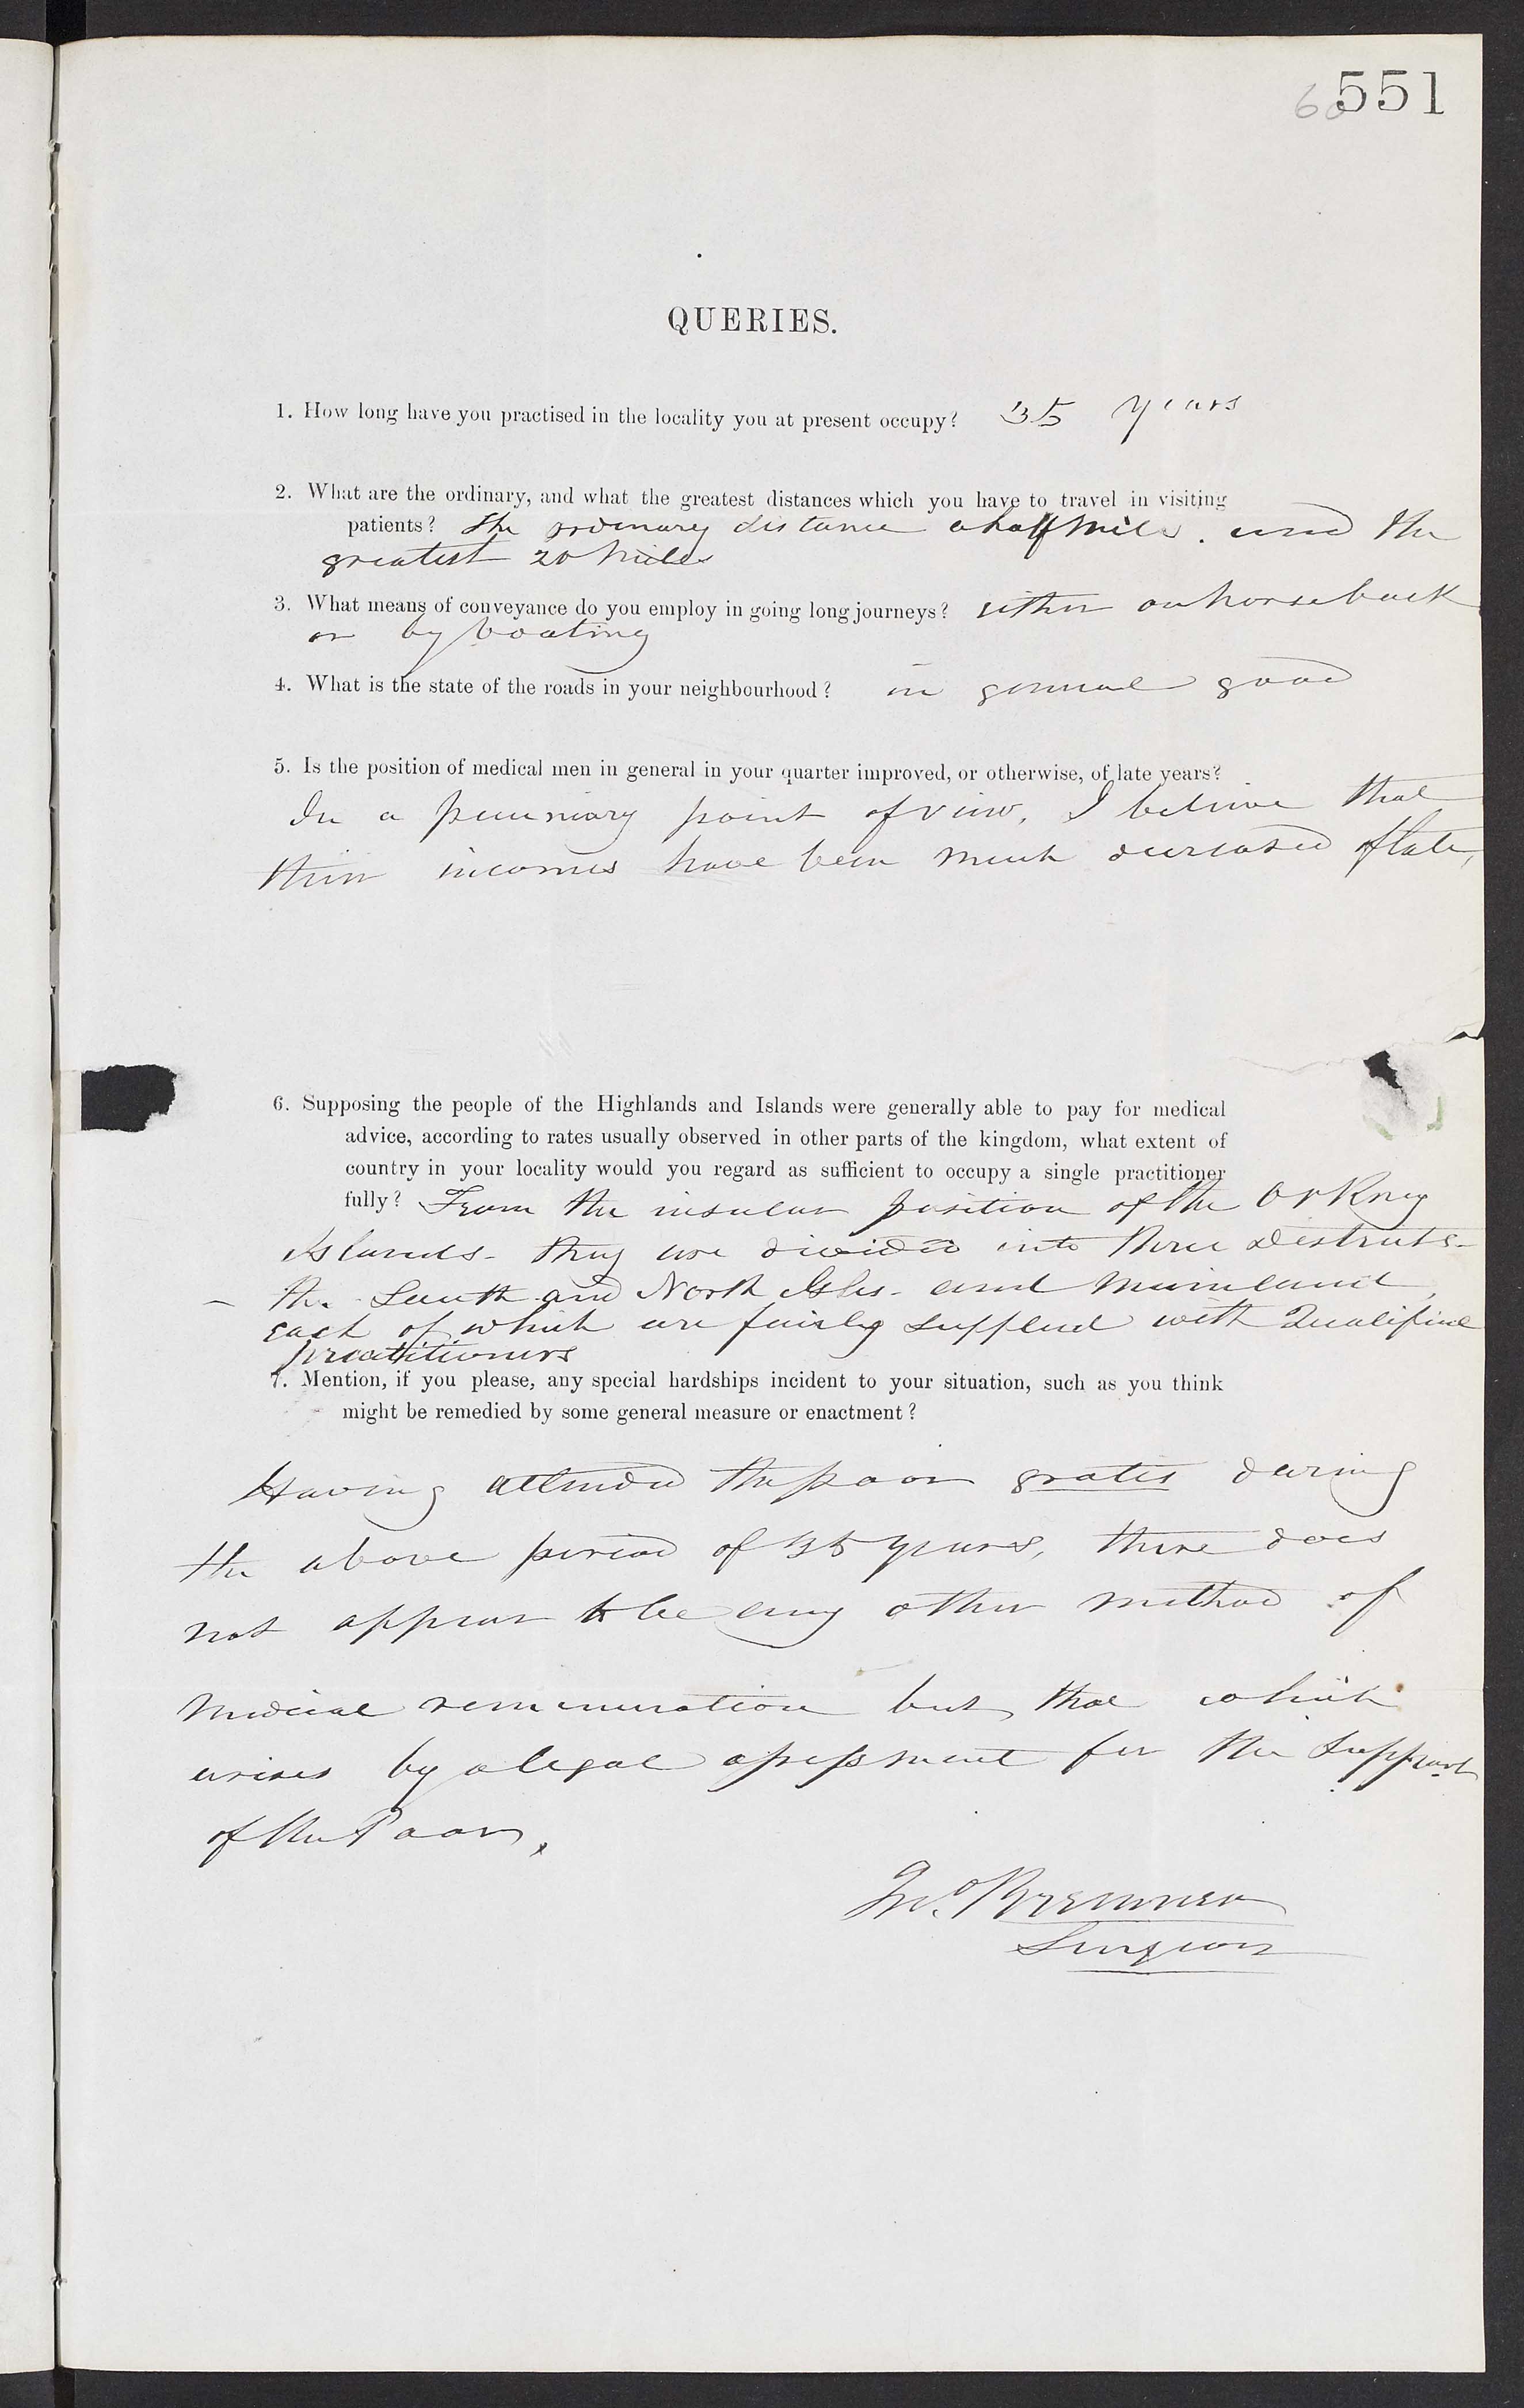 60 551
QUERIES.
1. How long have you practised in the locality you at present occupy? 35 years
2. What are the ordinary, and what the greatest distances which you have to travel in visiting
patients? The ordinary distance a half mile. and the
greatest 20 miles
3. What means of conveyance do you employ in going long journeys? either on horseback
or by boating
4. What is the state of the roads in your neighbourhood? in general good
5. Is the position of medical men in general in your quarter improved, or otherwise, of late years?
In a pecuniary point of view, I believe that
their incomes have been much decreased of late,
6. Supposing the people of the Highlands and Islands were generally able to pay for medical
advice, according to rates usually observed in other parts of the kingdom, what extent of
country in your locality would you regard as sufficient to occupy a single practitioner
fully? From the insular position of the Orkney
Islands - they are divided into three districts -
- the South and North Isles - and Mainland,
each of which are fairly supplied with Qualified
practitioners
7. Mention, if you please, any special hardships incident to your situation, such as you think
might be remedied by some general measure or enactment?
Having attended the poor gratis during
the above period of 35 years, there does
not appear to be any other method of
medical remuneration but that which
arises by a legal assessment for the support
of the Poor.
Jno. Bremner
Surgeon